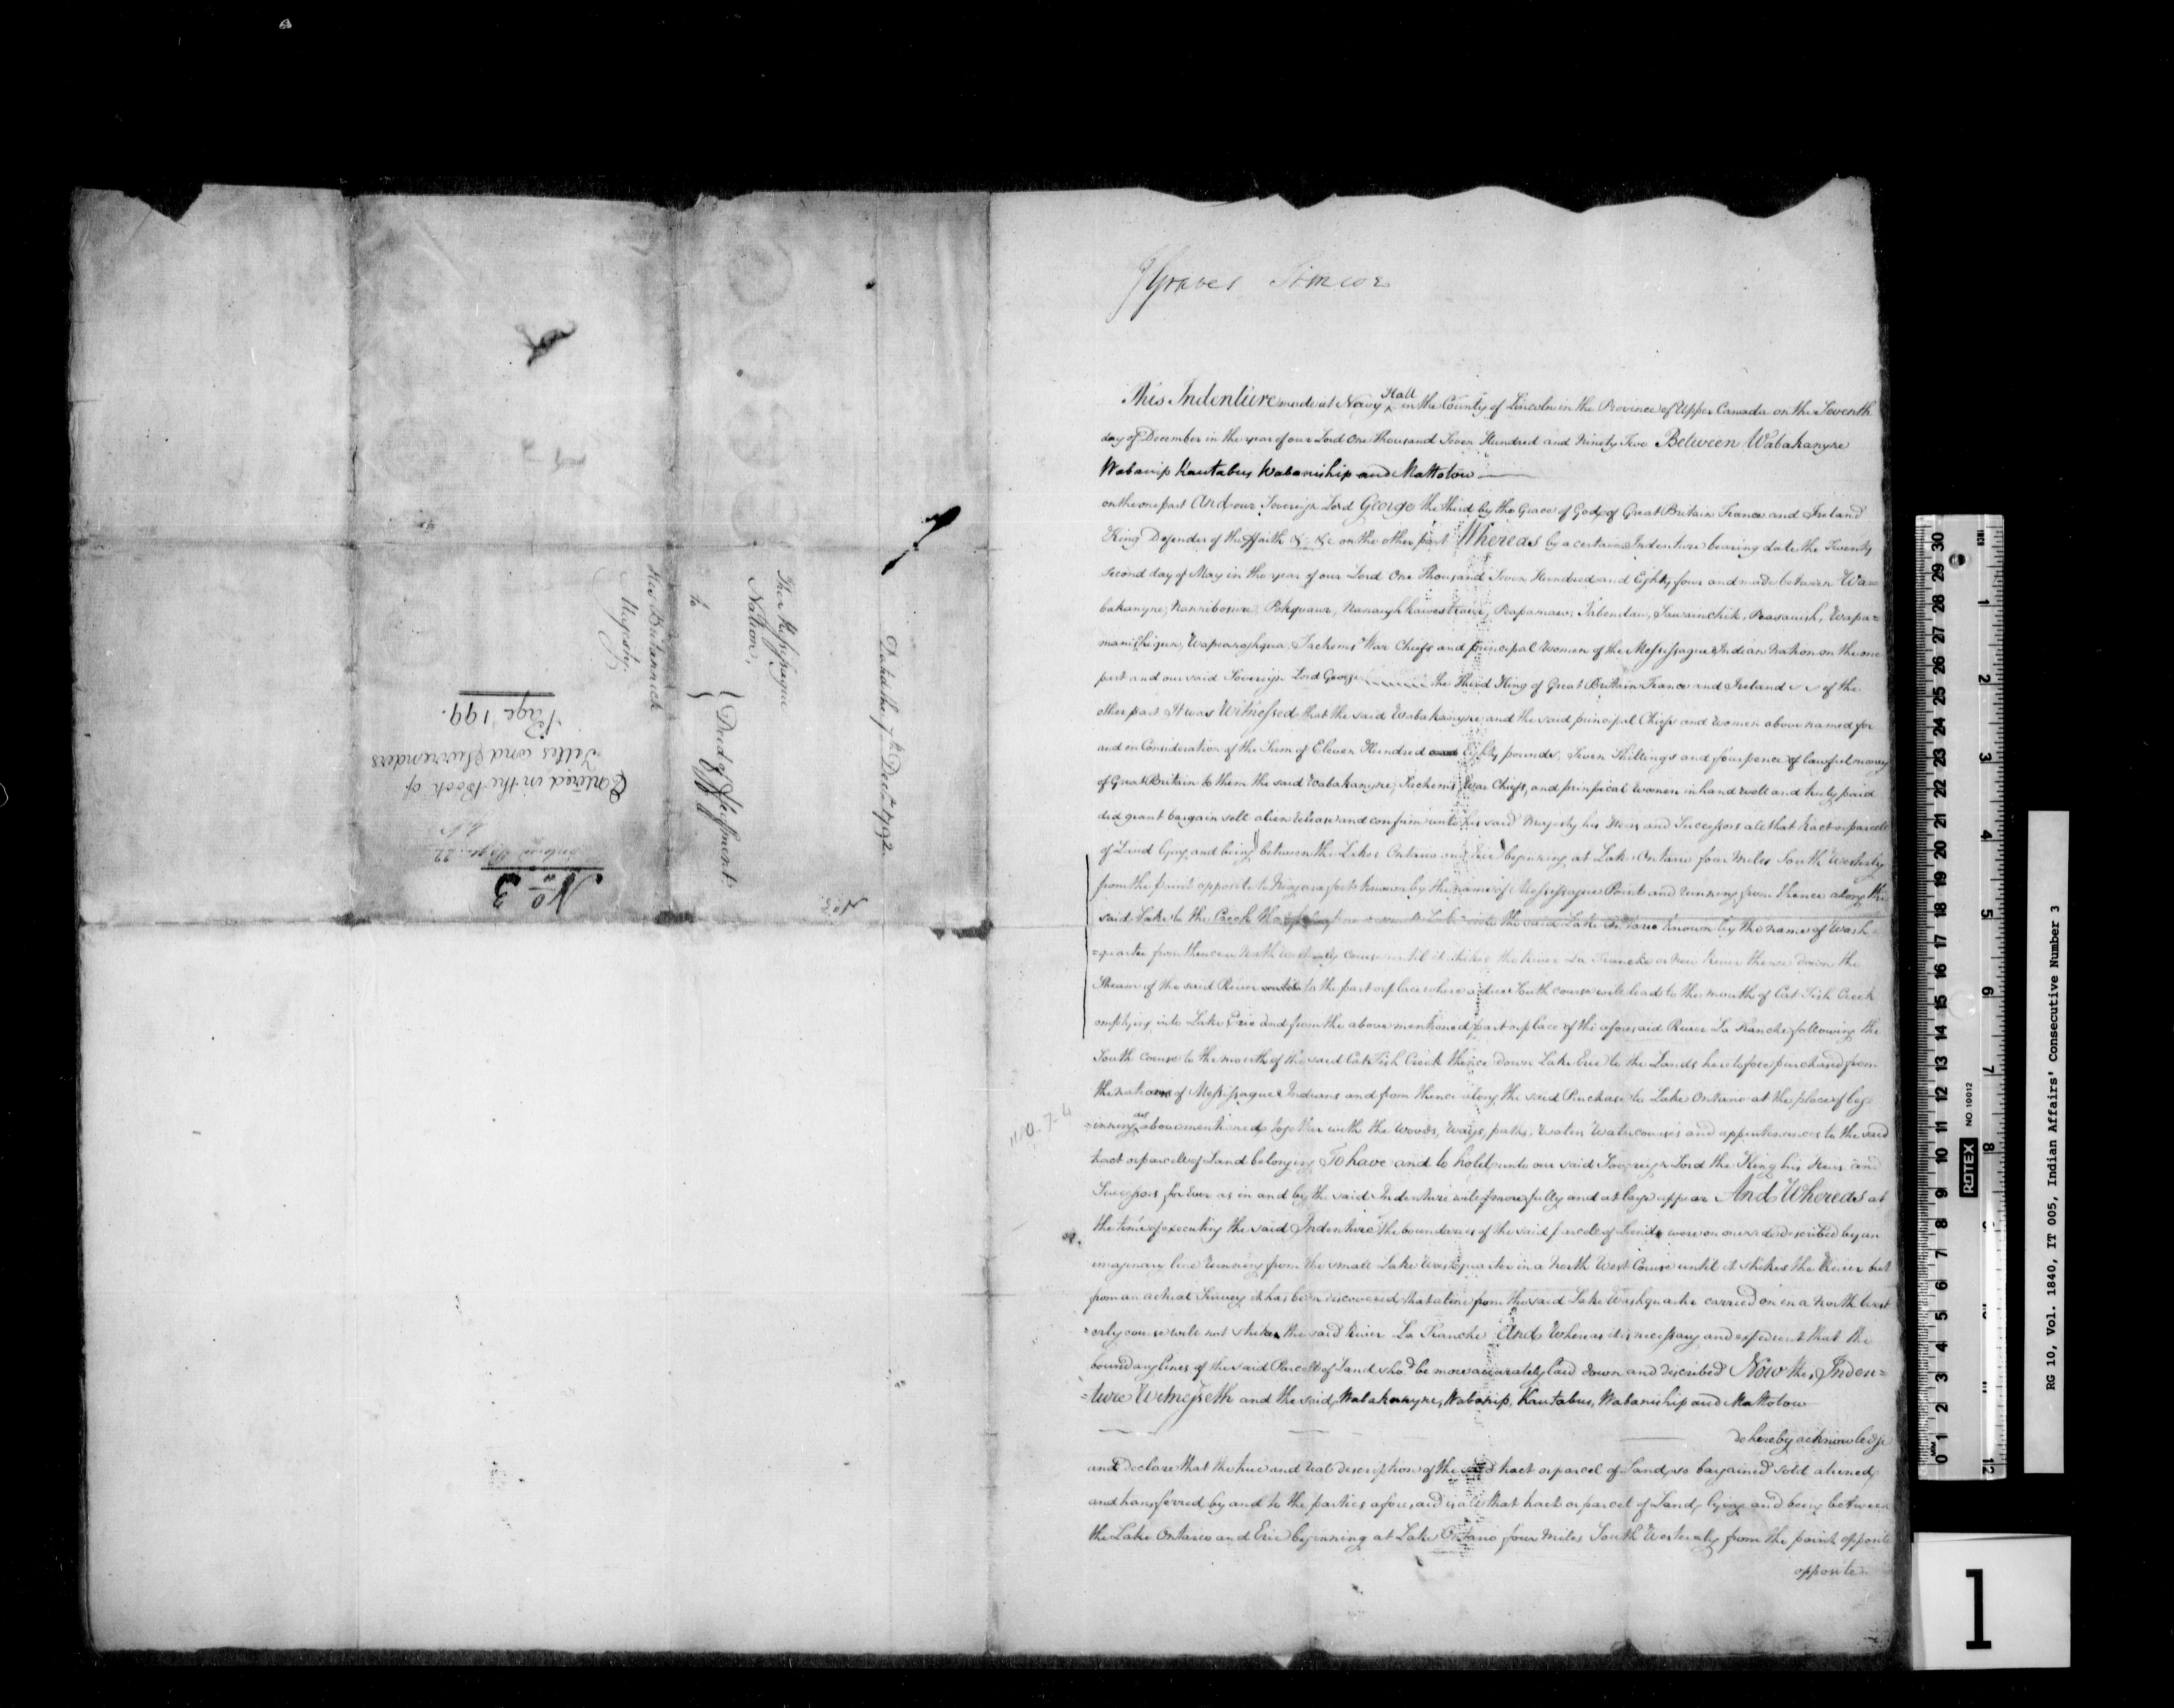 J Graves Simcoe
This Indenture made at Navy Hall in the County of Lincoln in the Province of Upper Canada on the Seventh
day of December in the year of our Lord One thousand Seven Hundred and Ninety Two Between Wabakanyne
Wabanip Kautabus Wabaniship and Mattotow
on the one part And our Sovereign Lord George the third by the Grace of God of Great Britain France and Ireland
King Defender of the Faith &c &c on the other part Whereas by a certain Indenture bearing date the Twenty
second day of May in the year of our Lord One Thousand Seven Hundred and Eighty four and made between Wa=
bakanyne, Nannibosure, Pokquawr, Nanaughkawestrawr, Peapamaw, Tabendau, Sawainchik, Peasanish, Wapa=
manischigun, Wapeanojhqua, Sachems War Chiefs and principal Women of the Messissague Indian Nation on the one
part and our said Sovereign Lord George the Third King of Great Britain France and Ireland &c &c of the
other part It was Witnessed that the said Wabakanyne and the said principal Chiefs and Women above named for
and in Consideration of the Sum of Eleven Hundred and Eighty pounds, Seven Shillings and four pence of lawful money
of Great Britain to them the said Wabakanyne, Sachems, War Chiefs, and prinpical Women in hand well and truly paid
did grant bargain sell alien release and confirm unto his said Majesty his Heirs and Successors all that tract or parcell
of Land lying and being between the Lakes Ontario and Erie beginning at Lake Ontario four Miles South Westerly
from the point opposite to Niagara fort known by the name of Messissague Point and running from thence along the
said Lake to the Creek that the said Lake Ontario known by the name of Wash
=quarter from thence a North Westerly course until it strikes the River La Tranche or New River thence down the
Stream of the said River to the part or place where a due South course will lead to the mouth of Cat Fish Creek
emptying into Lake Erie and from the above mentioned part or place of the aforesaid River La Tranche following the
South course to the mouth of the said Cat Fish Creek thence down Lake Erie to the Lands heretofore purchased from
the nations of Messissague Indians and from thence along the said Purchase to Lake Ontario at the place of beg=
=inning as above mentioned together with the Woods, Ways, paths, Waters Watercourses and appurtenances to the said
tract or parcell of Land belonging To have and to hold unto our said Sovereign Lord the King his Heirs and
Successors for Ever as in and by the said Indenture will more fully and at large appear And Whereas at
the time of executing the said Indenture the boundaries of the said parcell of Land were on one side described by an
imaginary line running from the small Lake Washquarter in a North West Course until it strikes the River but
from an actual Survey it has been discovered that a line from the said Lake Washquarter carried on in a North West
=erly course will not strike the said River La Tranche And Whereas it is necessary and expedient that the
boundary lines of the said Parcell of Land sho.d be more accurately laid down and discribed Now this Inden=
=ture Witnesseth and the said Wabakanyne, Wabanip, Kautabus, Wabaniship and Mattotow
do hereby acknowledge
and declare that the true and real description of the said tract or parcel of Land so bargained sold aliened
and transferred by and to the parties aforesaid is all that tract or parcel of Land lying and being between
the Lake Ontario and Erie beginning at Lake Ontario four Miles South Westerly from the point opposite
opposite
1180.7.4
Dated the 7th Decr 1792
The Messissague
Nation,
to
His Britannick
Majesty.
Deed of Feoffment
No 3.
No 3
Entered in the Book of
Titles and Surrenders
Page 199.
RG 10, Vol. 1840, IT 005, Indian Affairs' Consecutive Number 3
ROTEX
NO. 10012
0 1 2 3 4 5 6 7 8 9 10 11 12 13 14 15 16 17 18 19 20 21 22 23 24 25 26 27 28 29 30
1 2 3 4 5 6 7 8 12
1